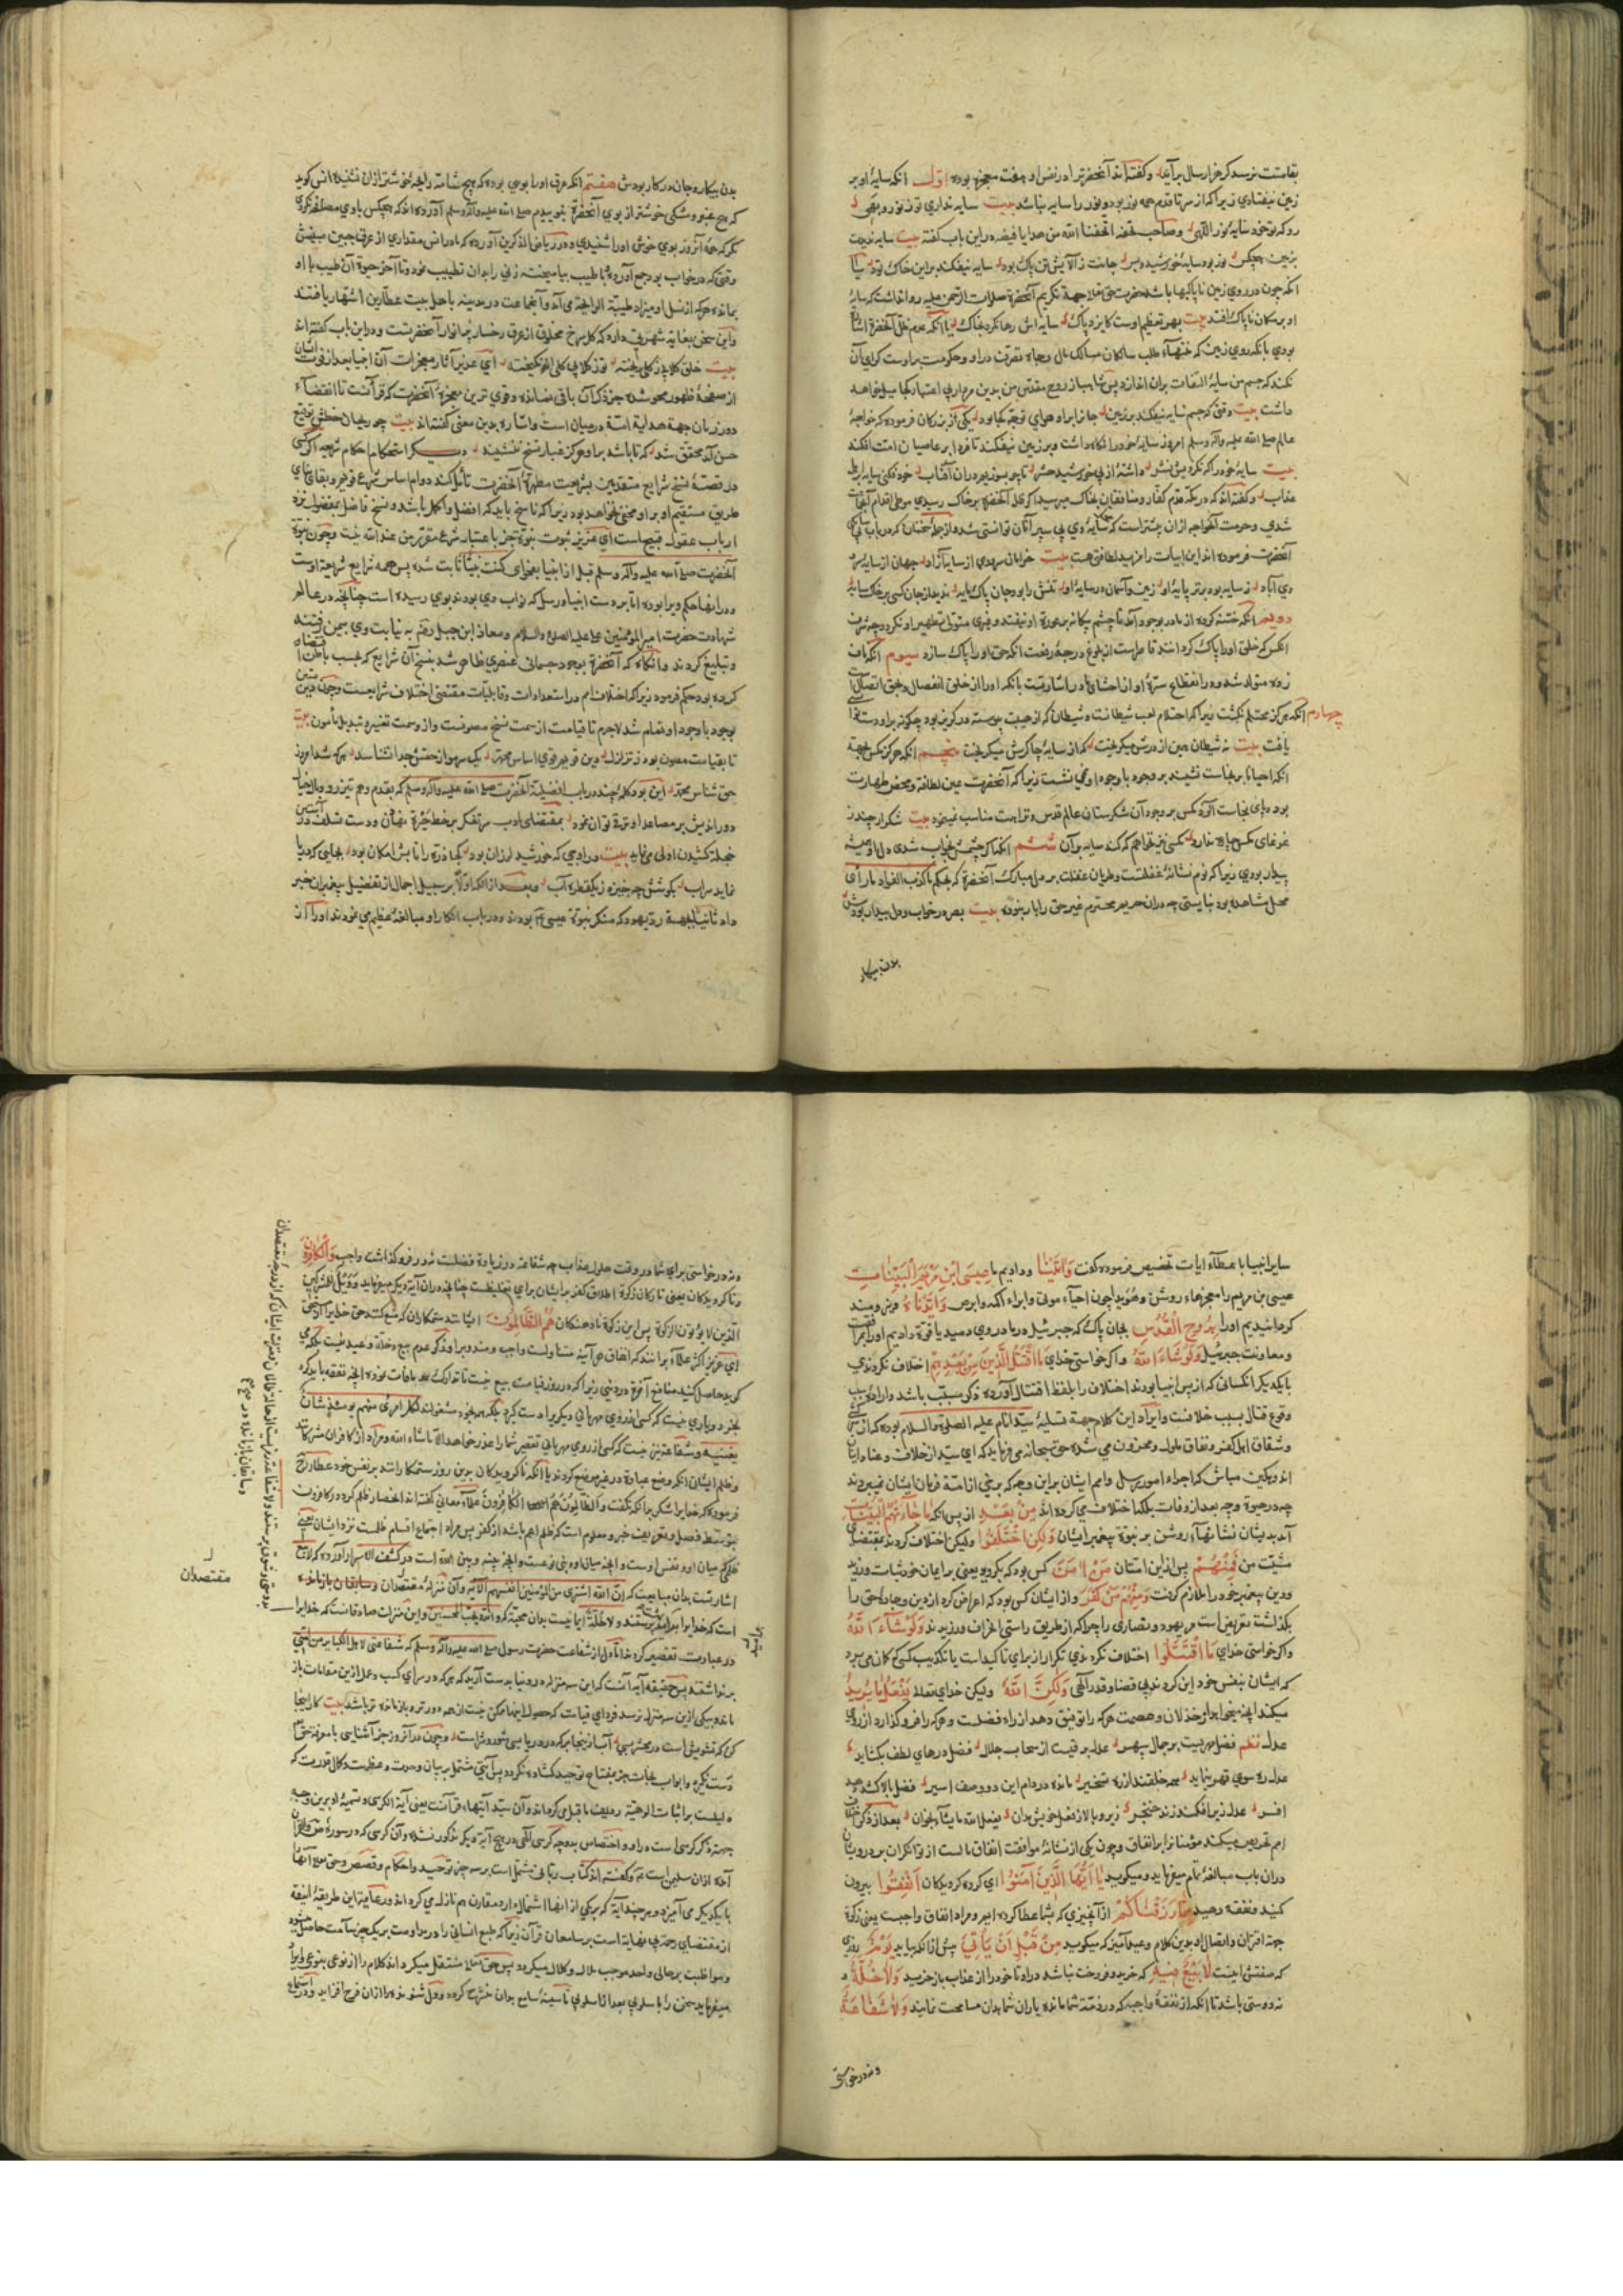 بقامتت نرسد کر هزار سال برآید و کفته‌اند آنحضرترا در نفس او هفت معجزه بوده اول انکه سایهٔ او بر
زمین نیفتادی زیرا که از سر تا قدم همه نور بود و نور را سایه نباشد بیت سایه نداری تو ز نور و بهی
رو که تو خود سایهٔ نور اللهی و صاحب تحفه اتحفنا الله من هدایا فیضه در این باب کفته بیت سایه ندیدت
بزمین هیچکس نور بود سایهٔ خورشید و بس جانت ز آلایش تن پاک بود سایه نیفکند بر این خاک تود یا
انکه چون در روی زمین ناپاکیها باشد حضرت حق علا جهة تکریم آنحضرة صلوات الرحمن علیه روا نداشت که سایهٔ
او بر مکان ناپاک افتد بیت بهر تعظیم اوست کایزد پاک سایه اش رها نکرد بخاک یا آنکه عدم ظل آنحضرة
نکند که جسم من سایهٔ التفات بران اندازد پس شاهباز روح مقدس من بدین مردار بی اعتبار کجا میل خواهد
داشت بیت وقتی که جسم سایه نیفکند بر زمین جانرا برا و هوای توجه کجا بود یکی از بزرکان فرموده که خواجهٔ
عالم صلی الله علیه واله وسلم امروز سایهٔ خود را نکاه داشت و بر زمین نیفکند تا فردا بر عاصیان امت افکند
بیت سایهٔ خود را که نکرد پیش نشر داشتهٔ از پی خورشید حشر تا چو بسوزیم دران آفتاب خود فکنی سایه بر اهل
عذاب و کفته‌اند که در مکه قدم کفار و منافقان بخاک میرسید اکر ظل آنحضرة بر خاک رسیدی موطی اقدام آنجماعت
شدی و حرمت آنخواجه ازان بیشتراست که سایهٔ وی پی سپر آنان توانستی شد
آنحضرت فرموده‌اند این ابیات را مزید لطافتی هست بیت خرامان سروی از سایه آزاد جهان از سایهٔ سرو
وی آباد ز سایه بود برتر پایهٔ او زمین و آسمان در سایهٔ او تنش را بود جان پاک مایه ندید از جان کسی بر خاک سایه
دویم انکه ختنه کرده از مادر بوجود آمد تا چشم بیکانه بر عورة او نیفتد و غیری متولی تطهیر او نکردد چه شرف
انکس که خلق او را پاک کرد‌اند قاصراست از بلوغ درجهٔ رفعت انکه حق او را پاک سازد سیوم انکه ناف
زده متولد شد و در انقطاع سرهٔ او از احشای مادر اشارتست بانکه او را از خلق انفصال و بحق اتصال
چهارم انکه هرکز محتلم نکشت زیرا که احتلام لعب شیطانست و شیطان که از هیبت پوسته در کریز بود چکونه برا و دست
یافت بیت نه شیطان همین از درش میکریخت که از سایهٔ چاکرش میکریخت پنجم انکه هرکز مکس بجهة
انکه احیانا بر نجاست نشیند بر وجود با وجود او نمی نشست زیرا که آنحضرت عین لطافة و محض طهارت
بود و پای نجاست آلود مکس بر وجود آن شکرستان عالم قدس و نزاهت مناسب نمینمود بیت شکر ار چند ز
غوغای مکس چاره ندارد مکسی نیز نخواهم که کند سایه بر آن ششم انکه اکر چشمش بخواب شدی دل او همیشه
بیدار بودی زیرا که نوم نشانهٔ غفلتست و طریان غفلت بر دل مبارک آنحضرة که بحکم ما کذب الفؤاد ما رأی
محل مشاهده بود نبایستی چه دران حریم محترم غیر حق را بار نبوده بیت بصر در خواب و دل بیدار بودش
بدن بیکار
بدن بیکار و جان در کار بودش هفتم انکه عرق او را بویی بوده که هیچ شامه رایحهٔ خوشتر ازان نشنیده انس کوید
که هیچ عنبر و مشکی خوشتر از بوی آنحضرة نبوییدم صلی الله علیه واله وسلم آورده‌اند که هیچکس با وی مصافحه نکردی
مکر که همهٔ آنروز بوی خوش او را شنیدی و در ریاض المذکرین آورده که مادر انس مقداری از عرق جبین مبینش
وقتی که در خواب بود جمع آورده با طیب بیامیخت و زنی را بدان تطییب نمود و تا آخر حیوة آن طیب با او
بمانده هر که از نسل او میزاد طیبة الرایحة می آمد و آنجماعت در مدینه باهل بیت عطارین اشتهار یافتند
واین سخن بغایت شهرتی دارد که کل سرخ مخلوق از عرق رخسار پر انوار آنحضرتست و در این باب کفته‌اند
بیت خلق کلابی ز کل ریخته تو ز کلابی کلی انکیخته ای عزیز آثار معجزات آن انبیا بعد از فوت ایشان
از صفحهٔ ظهور محو شد و جز ذکر آن باقی نمانده و قوی ترین معجزهٔ آنحضرت که قرآنست تا انقضاء
دور زمان جهة هدایة امة در میان است و اشاره بدین معنی کفته‌اند بیت چو ریحان خطش توقیع
حسن آمد محقق شد که تا باشد برا و هرکز غبار نسخ ننشیند دیکر استحکام احکام شرعیه اکر کسی
در قصهٔ نسخ شرایع متقدمین بشریعت مطهرهٔ آنحضرت تأمل کند دوام اساس شرع قویم و بقای بنای
طریق مستقیم او برا و مخفی نخواهد بود زیرا که ناسخ باید که افضل و اکمل باشد و نسخ فاضل بمفضول نزد
ارباب عقول قبیحاست ای عزیز ثبوت نبوة جز باعتبار شرع مقرر من عند الله نیست و چون نبوة
آنحضرت صلی الله علیه واله وسلم قبل از انبیا بفحوای کنت نبیا ثابت شد پس همه شرایع شریعة اوست
و در انها حکم ویرا بوده اما بر دست انبیا و رسل که نواب وی بودند بوی رسیده است چنانچه در عالم
شهادت حضرت امیر المؤمنین علی علیه الصلوة والسلام و معاذ ابن جبل رقم به نیابت وی بیمن رفتند
و تبلیغ کردند وانکاه که آنحضرة بوجود جسمانی عنصری ظاهر شد بنسخ آن شرایع که بحسب باطن اقتضاء
کرده بود حکم فرمود زیرا که اختلاف امم در استعدادات و قابلیات مقتضی اختلاف شرایعست و چون دین متین
بوجود با وجود او تمام شد لاجرم تا قیامت از سمت نسخ مصونست و از وصمت تغییر و تبدیل مأمون بیت
تا بقیامت مصون بود ز تزلزل دین قویم قوی اساس محمد یک سر مو از حقش جدا نشناسد هر که شد امروز
حق شناس محمد این بود کلمهٔ چند در باب افضلیة آنحضرت صلی الله علیه واله وسلم که بقدم وهم تیزرو و بال خیال
دور اندیش بر مصاعد او ترقی توان نمود بمقتضای ادب سر تفکر بر خط حیرة نهادن و دست تأسف در آستین
خجلة کشیدن اولی مینماید بیت در اوجی که خورشید لرزان بود کجا ذره را تابش امکان بود بجایی که دریا
نماید سراب بکوشش چه خیزد ز یکقطره آب وبعد از انکه اولا بر سبیل اجمال از تفضیل پیغمبران خبر
داد ثانیا بجهة رد یهود که منکر نبوة عیسی بودند و در باب انکار او مبالغهٔ عظیم می نمودند او را از ان
سایر انبیا با عطاء ایات تخصیص فرموده کفت وَآتَیْنَا و دادیم ما عِیسَی ابْنَ مَرْیَمَ الْبَیِّنَاتِ
عیسی بن مریم را معجزهاء روشن و هویدا چون احیاء موتی و ابراء اکمه و ابرص وَأَیَّدْنَاهُ و نیرومند
کردانیدیم او را بِرُوحِ الْقُدُسِ بجان پاک که جبرئیل درو دمید یا قوة دادیم او را بمرافقت
و معاونت جبرئیل وَلَوْ شَاءَ اللَّهُ و اکر خواستی خدای مَا اقْتَتَلَ الَّذِینَ مِنْ بَعْدِهِمْ اختلاف نکردندی
با یکدیکر انکسانی که از پس انبیا بودند اختلاف را بلفظ اقتتال آورده ذکر مسبب باشد و اراده سبب
وقوع قتال بسبب خلافست و ایراد این کلام جهة تسلیهٔ سید انام علیه الصلوة والسلام بوده که از
و شقاق اهل کفر و نفاق ملول و محزون می شد حق سبحانه می فرماید که ای سید از خلاف و عناد اینان
اندوهکین مباش که اجراء امور رسل و امم ایشان بر این وجه که برخی از امة فرمان ایشان نمیبردند
چه در حیوة و چه بعد از وفات بلکه اختلاف می کرده‌اند مِنْ بَعْدِ از پس انکه مَا جَاءَتْهُمُ الْبَیِّنَاتُ
آمد بدیشان نشانهاء روشن بر نبوة پیغمبر ایشان وَلَکِنِ اخْتَلَفُوا ولیکن اختلاف کردند بمقتضای
مشیت من فَمِنْهُمْ پس از این امتان مَنْ آمَنَ کس بود که بکروید یعنی بر ایمان خود ثبات ورزید
و دین پیغمبر خود را ملازم کرفت وَمِنْهُمْ مَنْ کَفَرَ و از ایشان کس بود که اعراض کرد از دین و جاده حق را
بکذاشت تعریض است بر یهود و نصاری را چرا که از طریق راستی انحراف ورزیدند وَلَوْ شَاءَ اللَّهُ
و اکر خواستی خدای مَا اقْتَتَلُوا اختلاف نکردندی تکرار از برای تاکیداست یا تکذیب کسی که کمان می برد
که ایشان بنفس خود این کردند بی قضا و قدر آلهی وَلَکِنَّ اللَّهَ ولیکن خدای تعالی یَفْعَلُ مَا یُرِیدُ
میکند آنچه میخواهد از خذلان و عصمت هر که را توفیق دهد از راه فضلست و هر که را فرو کذارد از روی
عدل نظم فضل مهربیت بر جمال سپهر عدل برقیست از سحاب جلال فضل درهای لطف بکشاید
عدل ره سوی قهر بنماید همه خلقند از ره تسخیر مانده در دام این دو وصف اسیر فضل بالا کشد دهد
افسر عدل زیر افکند زند خنجر زیر و بالا ز فعل خویش بدان یفعل الله ما یشاء بخوان بعد از ذکر اختلاف
امم تحریص میکند مؤمنانرا بر انفاق و چون یکی از نشانهٔ موافقت انفاق مالست از توانکران بر درویشان
دران باب مبالغهٔ تمام میفرماید و میکوید یَا أَیُّهَا الَّذِینَ آمَنُوا ای کروه کرویدکان أَنْفِقُوا بیرون
کنید و نفقه دهید مِمَّا رَزَقْنَاکُمْ از آنچیزی که بشما عطا کرده ایم و مراد انفاق واجبست یعنی زکوة
جهة اقتران و اتصال او بدین کلام وعید آمیز که میکوید مِنْ قَبْلِ أَنْ یَأْتِیَ پیش از انکه بیاید یَوْمٌ روزی
که صفتش اینست لَا بَیْعٌ فِیهِ که خرید و فروخت نباشد دران تا خود را از عذاب باز خرید وَلَا خُلَّةٌ و
نه دوستی باشد تا انکه از نفقهٔ واجبه که در ذمهٔ شما مانده یاران شما بدان مسامحت نمایند وَلَا شَفَاعَةٌ
و نه درخواستی
و نه درخواستی برای شما در وقت حلول عذاب چه شفاعة در زیادة فضلست نه در فرو کذاشت واجب وَالْکَافِرُونَ
و ناکرویدکان یعنی تارکان زکوة اطلاق کفر بر ایشان برای تغلیظست چنانچه دران آیهٔ دیکر میفرماید وَوَیْلٌ لِلْمُشْرِکِینَ
الَّذِینَ لَا یُؤْتُونَ الزَّکَوةَ پس این زکوة نادهندکان هُمُ الظَّالِمُونَ ایشانند ستمکاران که منع کنند حق خدایرا
ای عزیز اکثر علماء برانند که انفاق هر آینه متناولست واجب و مندوبرا و ذکر عدم بیع و خلة وعید نیست بلکه می
کوید حاصل کنید منافع آخرة در دنیی زیرا که در روز قیامت بیع نیست تا تدارک ما فات بوده انچه نفقه باید کرد
بخرند و یاری نیست که کسی از روی مهربانی دیکریرا دست کیرد بلکه همه بخود مشغولند لکل امرئ منهم یومئذ شان
یغنیه و شفاعة نیز نیست که کسی از روی مهربانی تقصیر شما را عذر خواهد الا ما شاء الله و مراد از کافران مشرکانند
و ظلم ایشان انکه وضع عبادة در غیر موضع کردند یا انکه ناکرویدکان بدین روز ستمکارانند بر نفس خود عطاء
فرموده که خدایرا شکر برانکه نکفت والظالمون هم الکافرون علماء معانی کفته‌اند انحصار ظلم کرده در کافرون
بتوسط فصل و تعریف خبر و معلوم است که ظلم اعم باشد از کفر پس مراد اجتماع اقسام ظلمست نزد ایشان یعنی
است که خدایرا
در عبادت تقصیر کردند اما دل از شفاعت حضرت رسول صلی الله علیه واله وسلم که شفاعتی لاهل الکبایر من امتی
برنداشتند پس حقیقهٔ آیه آنست که این سه منزل در دنیا بدست آرید که هر که در سرای کسب و عمل ازین مقامات باز
ماند و بیکی ازین سه منزل نرسد فردای قیامت که حصول اینها ممکن نیست از همه دورتر و بازمانده تر باشد بیت کار اینجا
کن که تشویش است در محشر بسی آب از اینجا بر که در دریا بسی شور و شراست و چون در آنروز جز آشنایی با معرفة حق
دست نکیرد و ابواب نجات جز بمفتاح توحید کشاده نکردد پس آیتی مشتمل بر بیان وحدت و عظمت و کمال قدرت که
دلیلست بر اثبات الوهیت ردیف ما قبل می کرداند و آن سید آیتهاء قرآنست یعنی آیة الکرسی و تسمیهٔ او بدین وجه
جهة ذکر کرسی است درو و اختصاص بدو چه کرسی الهی در هیچ آیهٔ دیکر مذکور نشده و آن کرسی که در سورهٔ ص واقع
آمده ازان سلیمن است و کفته‌اند کتاب ربانی مشتمل است بر سه چیز توحید و احکام و قصص و حق تعالی انها
با یکدیکر می آمیزد و هر چند آیه که بر یکی از انها اشتمال دارد مقارن هم نازل می کرداند و رعایة این طریقهٔ انیقه
از مقتضای رحمة بی نهایة است بر سامعان قرآن زیرا که طبع انسانی را در مداومت بر یک چیز سأمت حاصل میشود
و مواظبت بر حالی واحد موجب ملال و کلال میکردد پس حق تعالی منتقل میکرداند کلام را از نوعی بنوعی و ایراد
میفرماید سخن را باسلوبی بعد از اسلوبی تا سینهٔ سامع بدان منشرح کردد و دل شنونده را ازان فرح افزاید و در استماع
مقتصدان